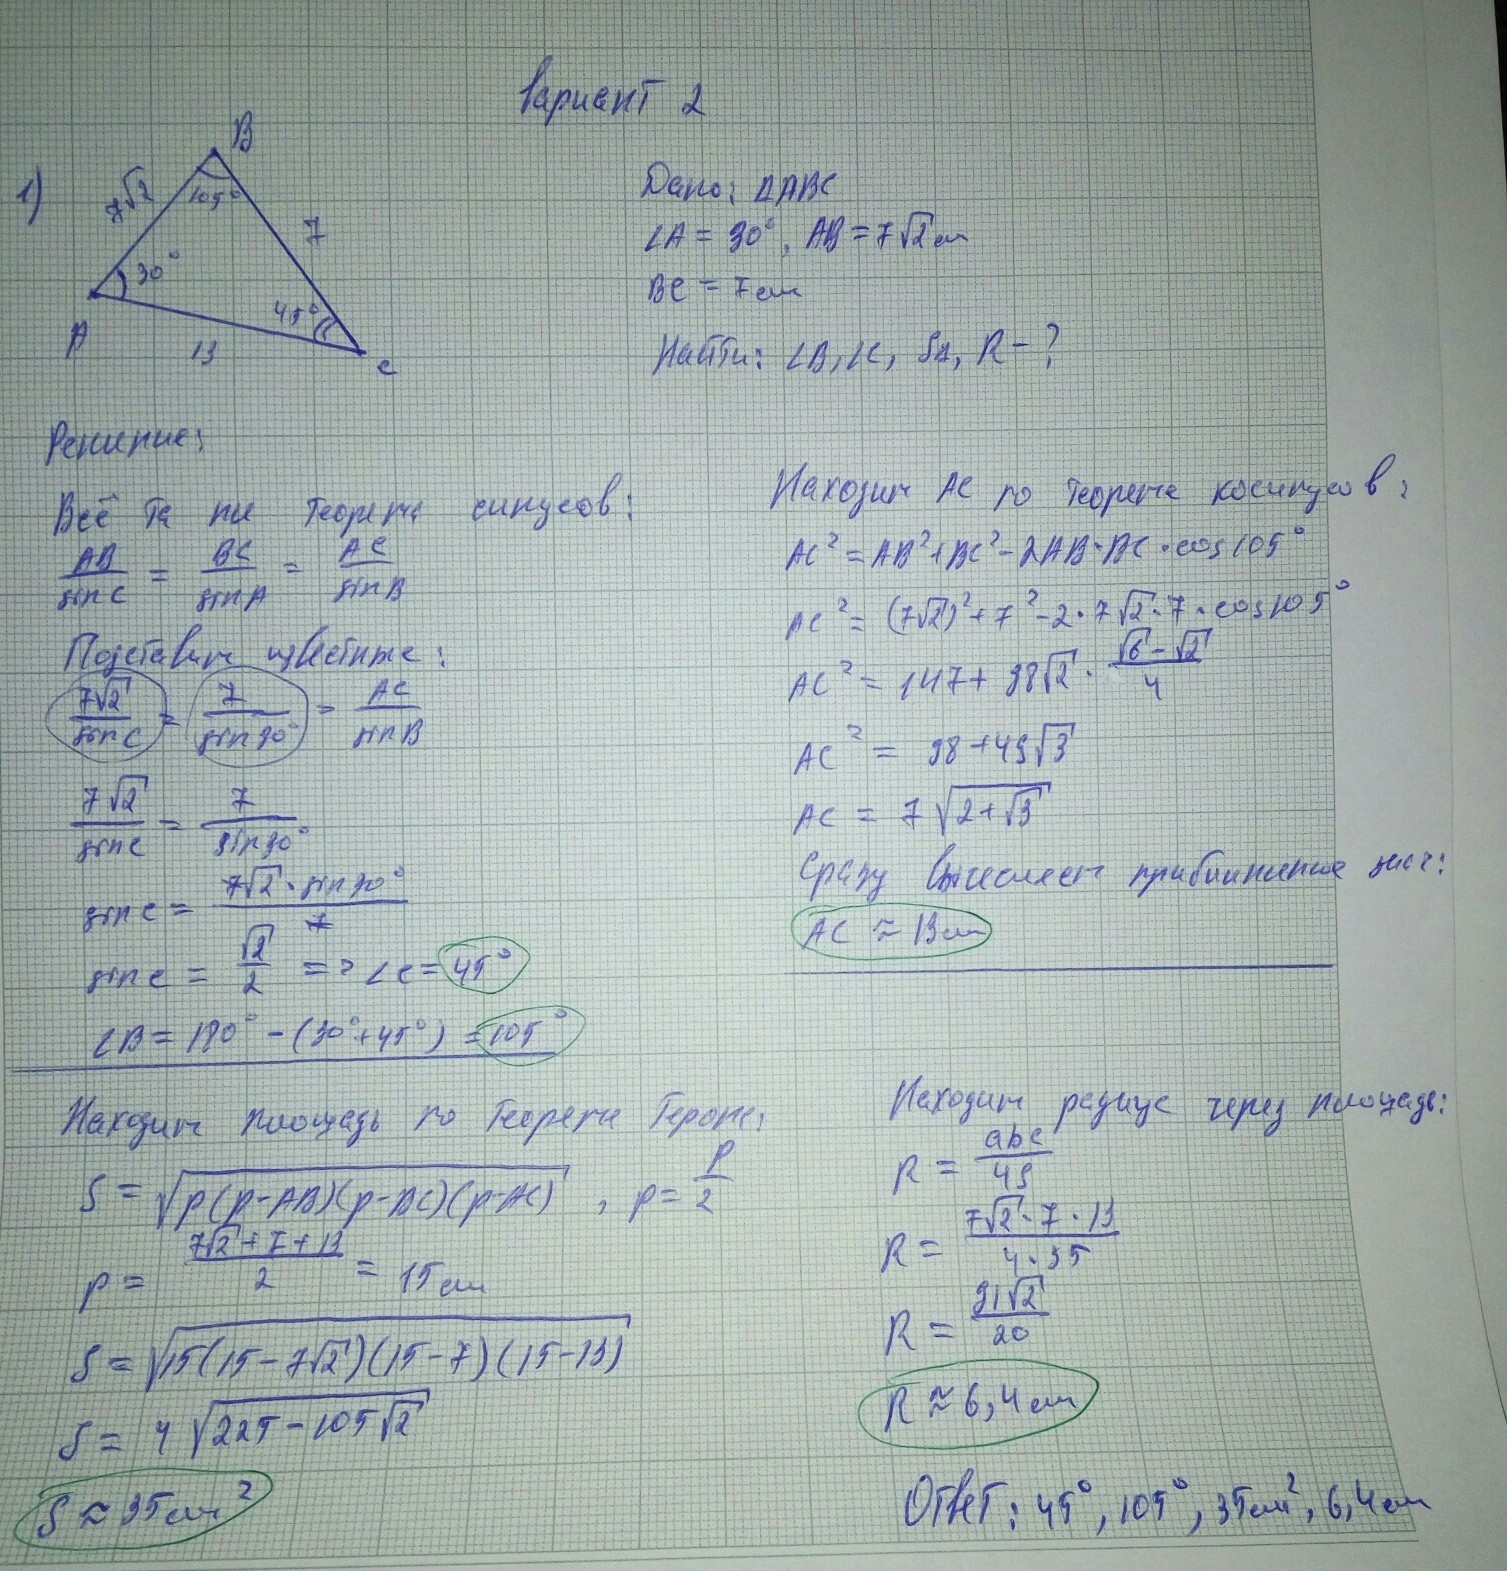 Вариант 2
1)
B
7√2
105°
7
30°
45°
A
13
C
Дано: ΔABC
∠A = 30°, AB = 7√2 см
BC = 7 см
Найти: ∠B, ∠C, SΔ, R - ?
Решение:
Всё та же теорема синусов:
AB/sin C = BC/sin A = AC/sin B
Подставим известные:
7√2/sin C = 7/sin 30° = AC/sin B
7√2/sin C = 7/sin 30°
sin C = 7√2 · sin 30°/7
sin C = √2/2 => ∠C = 45°
∠B = 180° - (30° + 45°) = 105°
Находим AC по теореме косинусов:
AC² = AB² + BC² - 2AB · BC · cos 105°
AC² = (7√2)² + 7² - 2 · 7√2 · 7 · cos 105°
AC² = 147 + 98√2 · (√6 - √2)/4
AC² = 98 + 49√3
AC = 7√(2 + √3)
Сразу вычисляем приближенное знач:
AC ≈ 13 см
Находим площадь по теореме Герона:
S = √(p(p - AB)(p - BC)(p - AC)), p = P/2
p = (7√2 + 7 + 13)/2 = 15 см
S = √(15(15 - 7√2)(15 - 7)(15 - 13))
S = 4√(225 - 105√2)
S ≈ 35 см²
Находим радиус через площадь:
R = abc/4S
R = 7√2 · 7 · 13/4 · 35
R = 91√2/20
R ≈ 6,4 см
Ответ: 45°, 105°, 35 см², 6,4 см